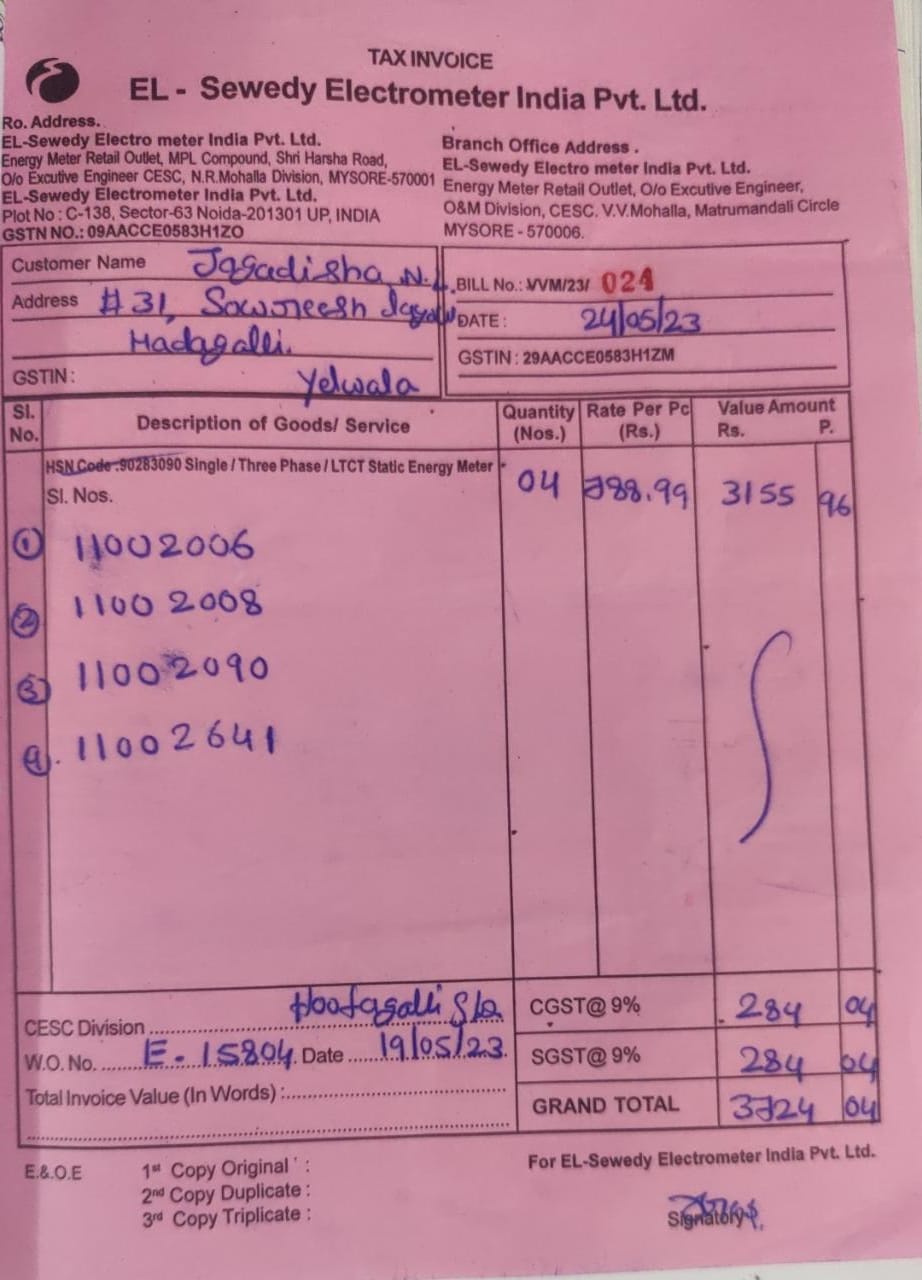 TAX INVOICE
EL - Sewedy Electrometer India Pvt. Ltd.
Ro. Address.
EL-Sewedy Electro meter India Pvt. Ltd.
Energy Meter Retail Outlet, MPL Compound, Shri Harsha Road,
O/o Excutive Engineer CESC, N.R.Mohalla Division, MYSORE-570001
EL-Sewedy Electrometer India Pvt. Ltd.
Plot No : C-138, Sector-63 Noida-201301 UP, INDIA
GSTN NO.: 09AACCE0583H1ZO
Branch Office Address .
EL-Sewedy Electro meter India Pvt. Ltd.
Energy Meter Retail Outlet, O/o Excutive Engineer,
O&M Division, CESC. V.V.Mohalla, Matrumandali Circle
MYSORE - 570006.
Customer Name Jagadisha N.
Address #31,
Hadagalli.
GSTIN : Yelwala
BILL No.: VVM/23/ 024
DATE : 24/05/23
GSTIN : 29AACCE0583H1ZM
Sl. No. Description of Goods/ Service Quantity (Nos.) Rate Per Pc (Rs.) Value Amount Rs. P.
HSN Code :90283090 Single / Three Phase / LTCT Static Energy Meter
Sl. Nos. 04 788.99 3155 96
1 11002006
2 11002008
3 11002090
4. 11002641
CESC Division Hootagalli S/D
W.O. No. E-15804. Date 19/05/23.
Total Invoice Value (In Words) :
CGST@ 9% 284 04
SGST@ 9% 284 04
GRAND TOTAL 3724 04
E.&.O.E
1st Copy Original :
2nd Copy Duplicate :
3rd Copy Triplicate :
For EL-Sewedy Electrometer India Pvt. Ltd.
Signatory